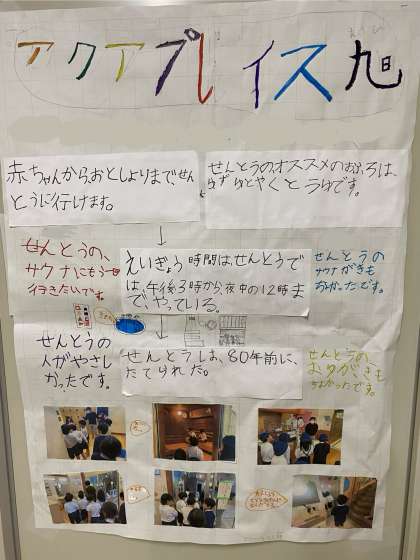 アクアプレイス旭
赤ちゃんから、おとしよりまで、せん
とうに行けます。
せんとうのオススメのおふろは、
せんとうの、
サウナにもう一回
行きたいです。
えいぎょう時間は、せんとうで
は、午後3時から、夜中の12時ま
でやっている。
せんとうの
サウナがきも
ちよかったです。
せんとうの
人がやさし
かったです。
せんとうは、80年前に、
たてられた。
せんとうの、
おゆがきも
ちよかったです。